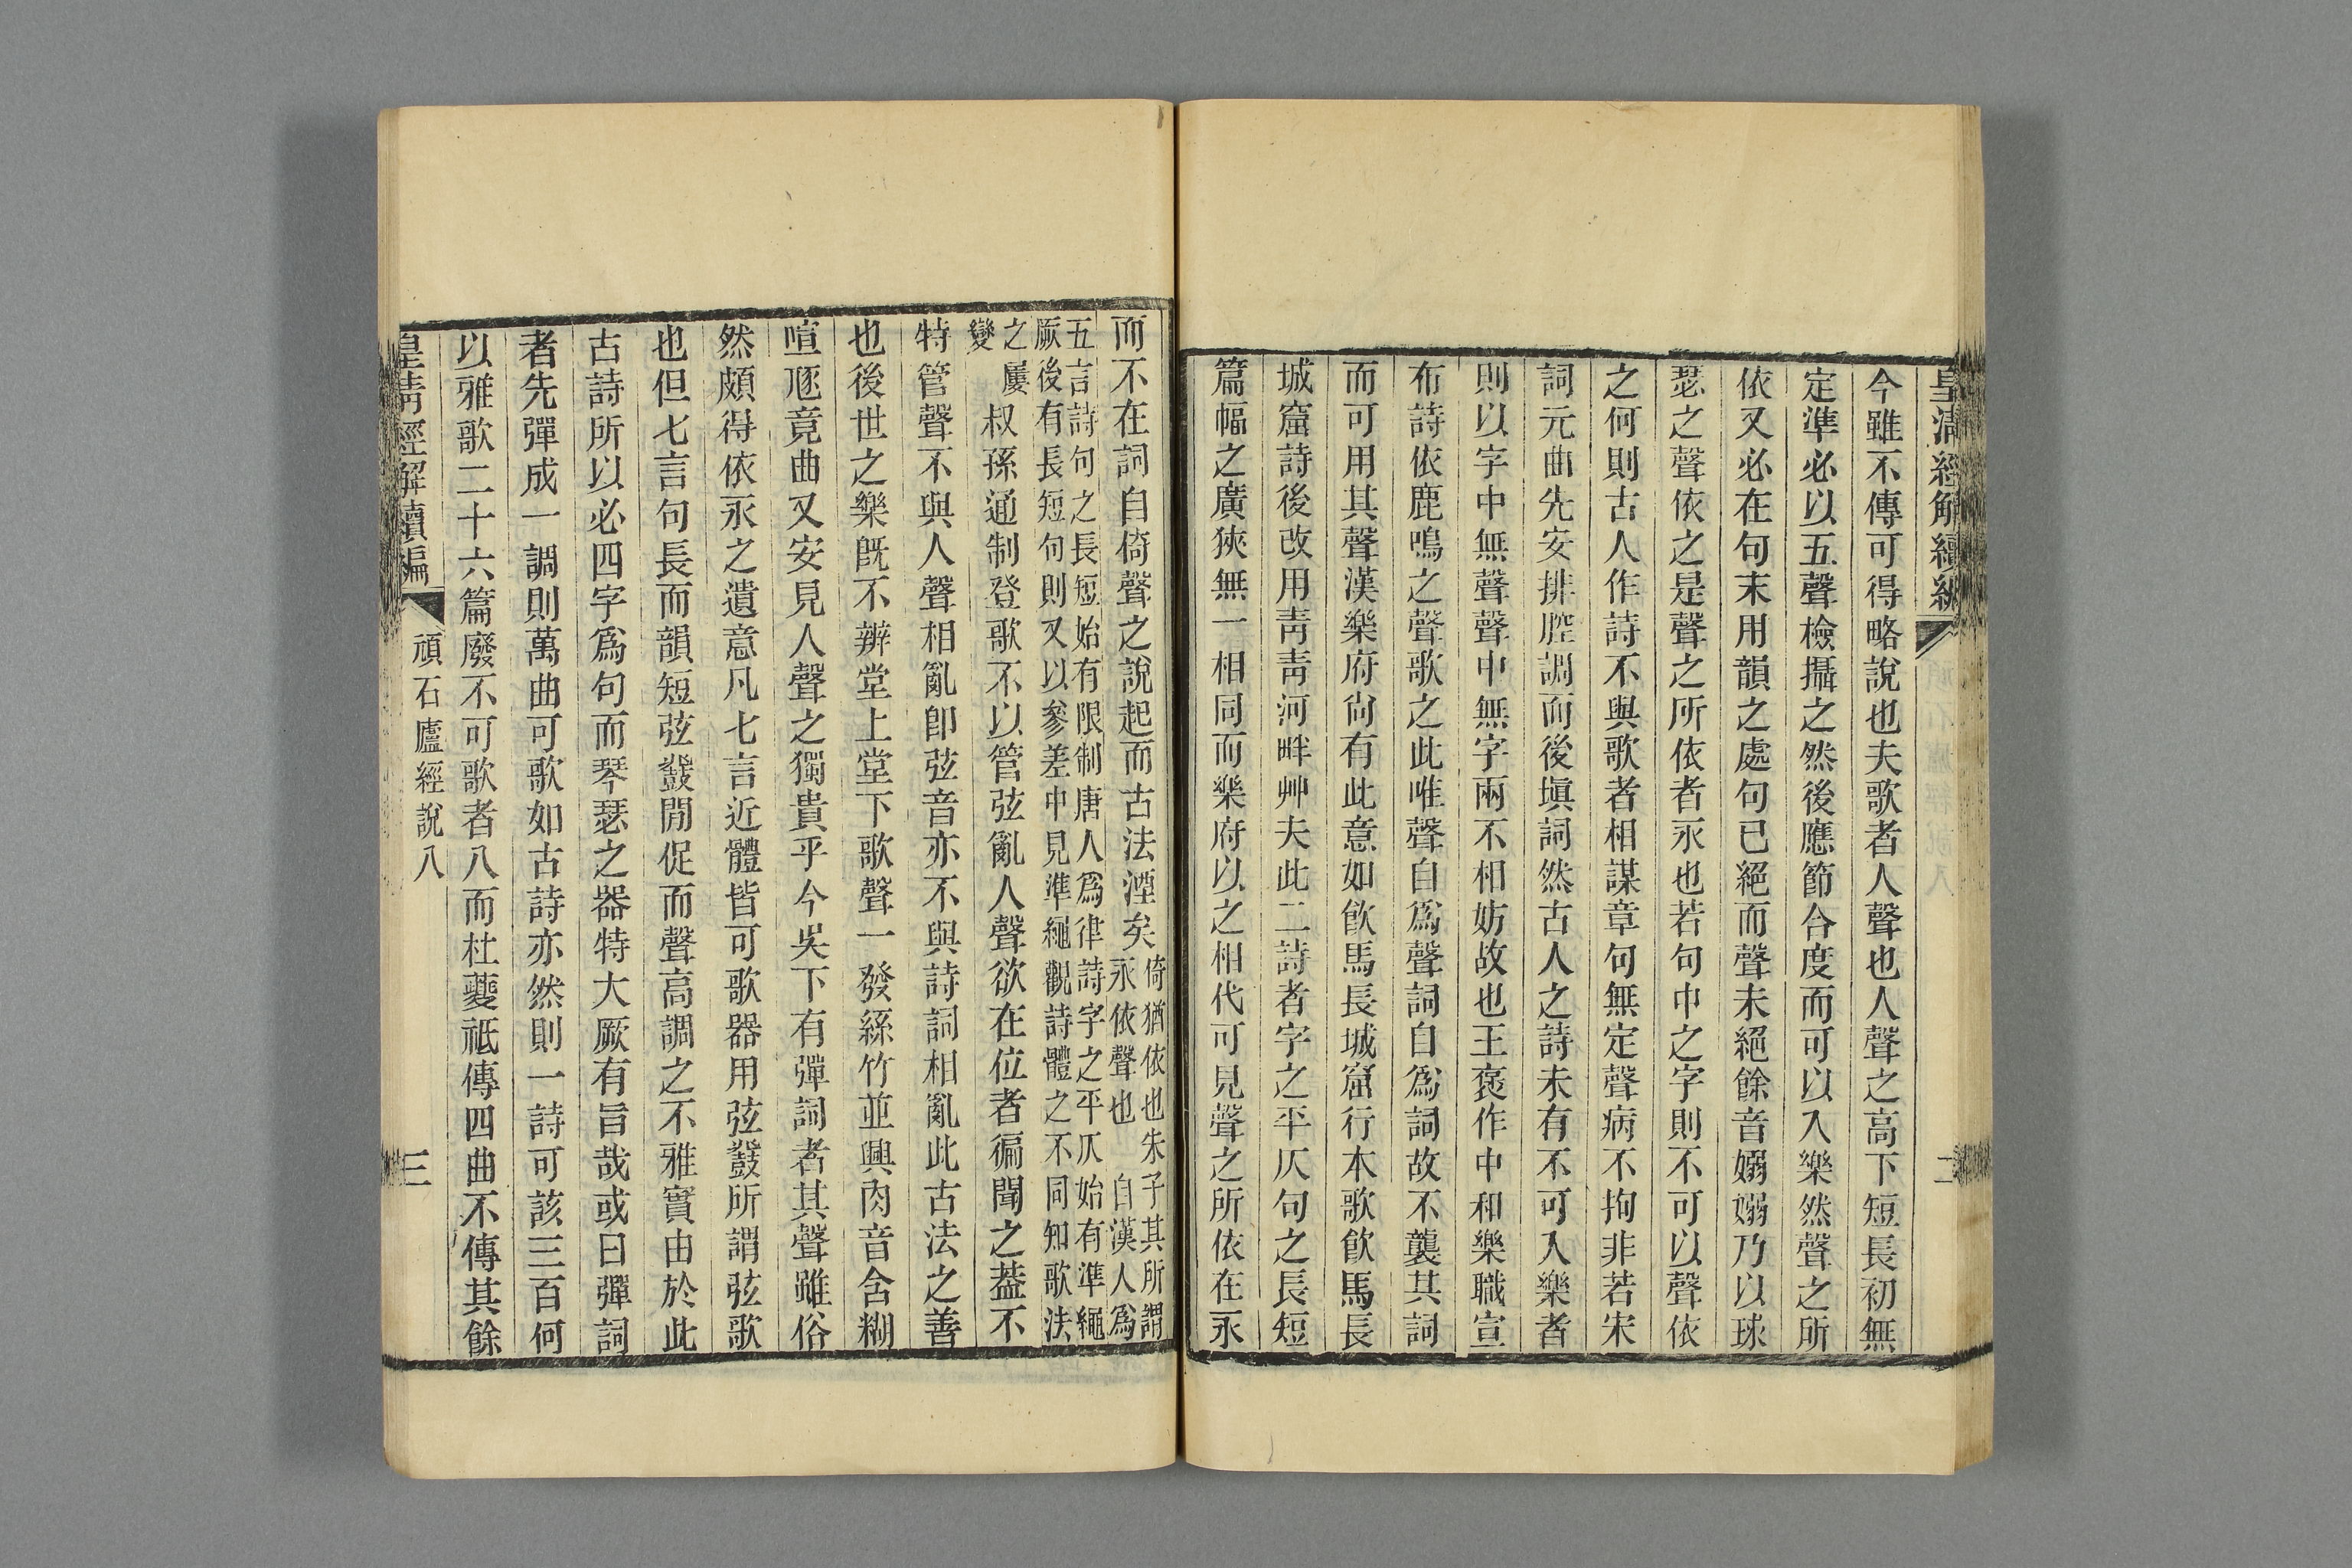 皇清經解續編
二
今雖不傳可得略說也夫歌者人聲也人聲之高下短長初無
定準必以五聲檢攝之然後應節合度而可以入樂然聲之所
依又必在句末用韻之處句已絕而聲未絕餘音嫋嫋乃以球
瑟之聲依之是聲之所依者永也若句中之字則不可以聲依
之何則古人作詩不與歌者相謀章句無定聲病不拘非若宋
詞元曲先安排腔調而後塡詞然古人之詩未有不可入樂者
則以字中無聲聲中無字兩不相妨故也王褒作中和樂職宣
布詩依鹿鳴之聲歌之此唯聲自爲聲詞自爲詞故不襲其詞
而可用其聲漢樂府尙有此意如飮馬長城窟行本歌飮馬長
城窟詩後改用靑靑河畔艸夫此二詩者字之平仄句之長短
篇幅之廣狹無一相同而樂府以之相代可見聲之所依在永
而不在詞自倚聲之說起而古法湮矣
倚猶依也朱子其所謂
永依聲也　自漢人爲
五言詩句之長短始有限制唐人爲律詩字之平仄始有準繩
厥後有長短句則又以參差中見準繩觀詩體之不同知歌法
之屢
變
叔孫通制登歌不以管弦亂人聲欲在位者徧聞之葢不
特管聲不與人聲相亂卽弦音亦不與詩詞相亂此古法之善
也後世之樂旣不辨堂上堂下歌聲一發絲竹並興肉音含糊
喧豗竟曲又安見人聲之獨貴乎今吳下有彈詞者其聲雖俗
然頗得依永之遺意凡七言近體皆可歌器用弦鼗所謂弦歌
也但七言句長而韻短弦鼗閒促而聲高調之不雅實由於此
古詩所以必四字爲句而琴瑟之器特大厥有旨哉或曰彈詞
者先彈成一調則萬曲可歌如古詩亦然則一詩可該三百何
以雅歌二十六篇廢不可歌者八而杜夔祗傳四曲不傳其餘
皇淸經解續編
頑石廬經說八
三